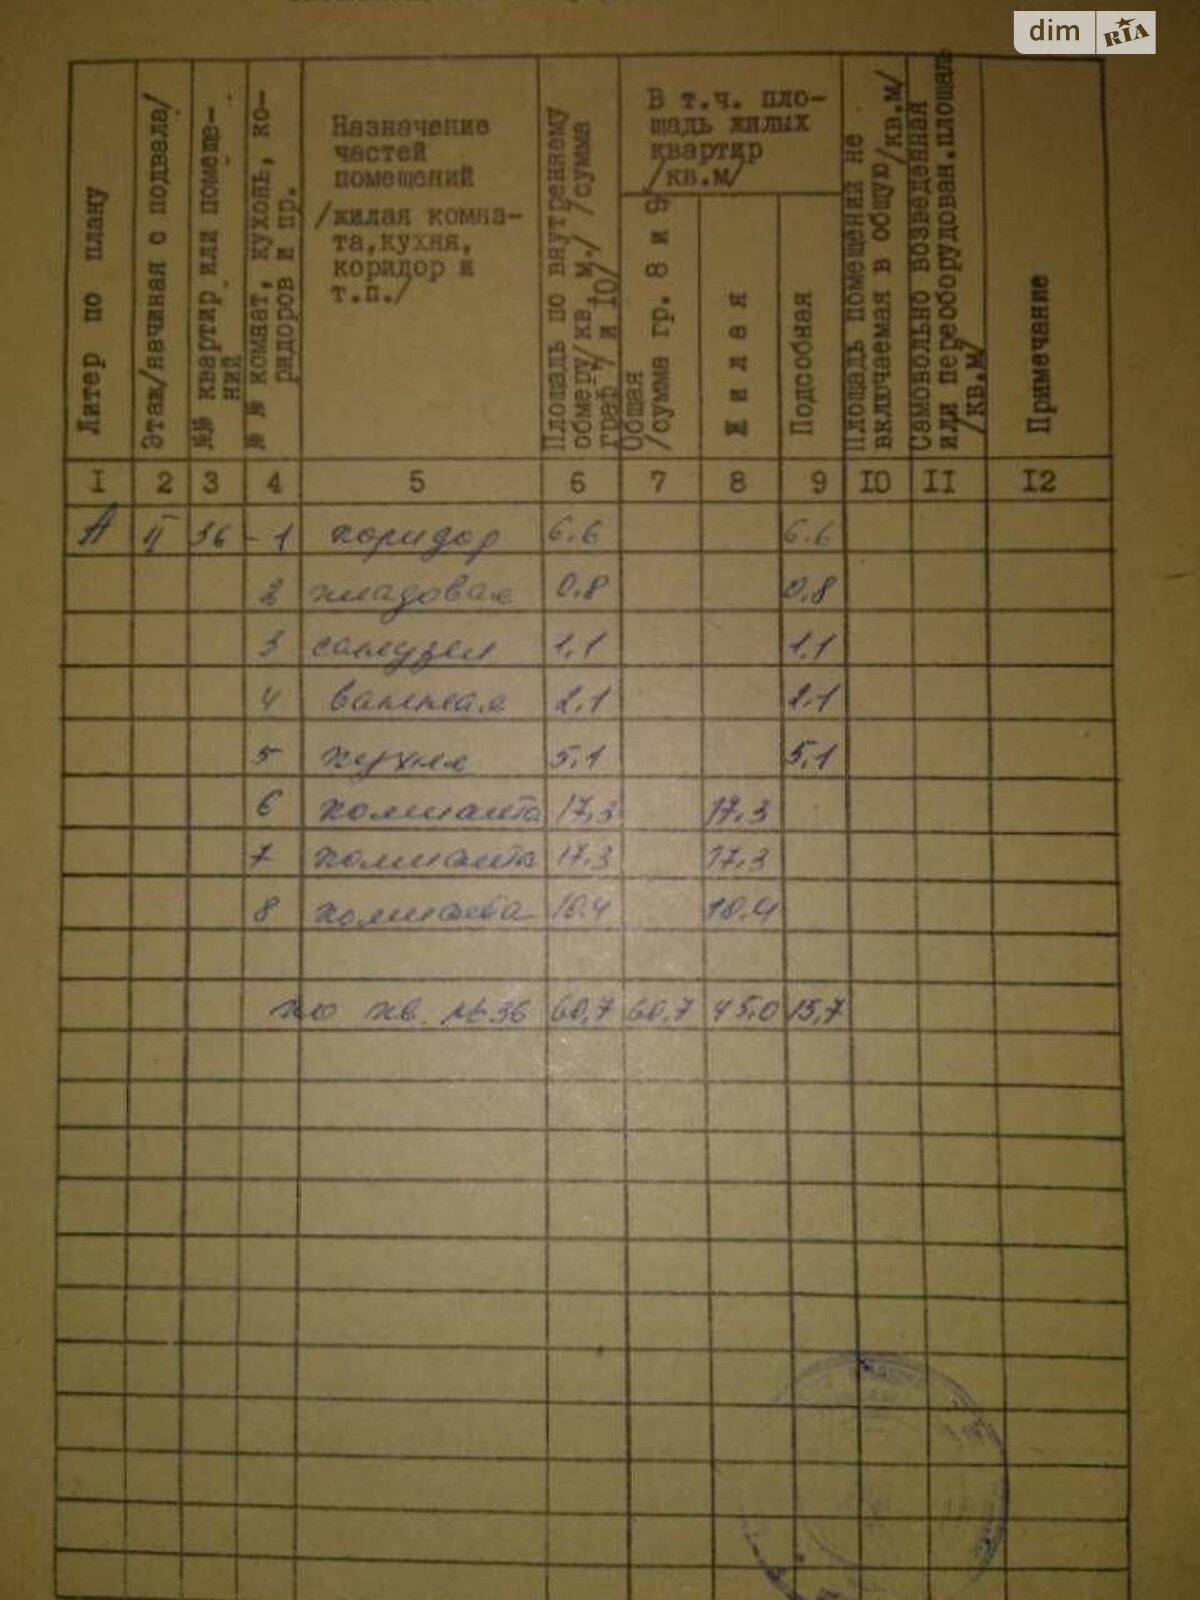 dim RIA
Литер по плану
Этаж/начиная с подвала/
№№ квартир или помеще-
ний
№ № комнат, кухонь, ко-
ридоров и пр.
Назначение
частей
помещений
/жилая комна-
та, кухня,
коридор и
т.п./
Площадь по внутреннему
обмеру/кв. м./ /сумма
граф 7 и 10/
В т.ч. пло-
щадь жилых
квартир
/кв.м/
Общая
/сумма гр. 8 и 9
Жилая
Подсобная
Площадь помещений не
включаемая в общую/кв.м/
Самовольно возведенная
или переоборудован.площадь
/кв.м/
Примечание
1 2 3 4 5 6 7 8 9 10 11 12
А II 36 - 1 коридор 6.6 6.6
2 кладовая 0,8 0,8
3 санузел 1,1 1,1
4 ванная 2,1 2,1
5 кухня 5,1 5,1
6 комната 17,3 17,3
7 комната 17,3 17,3
8 комната 10.4 10.4
по кв. №36 60,7 60,7 45,0 15,7